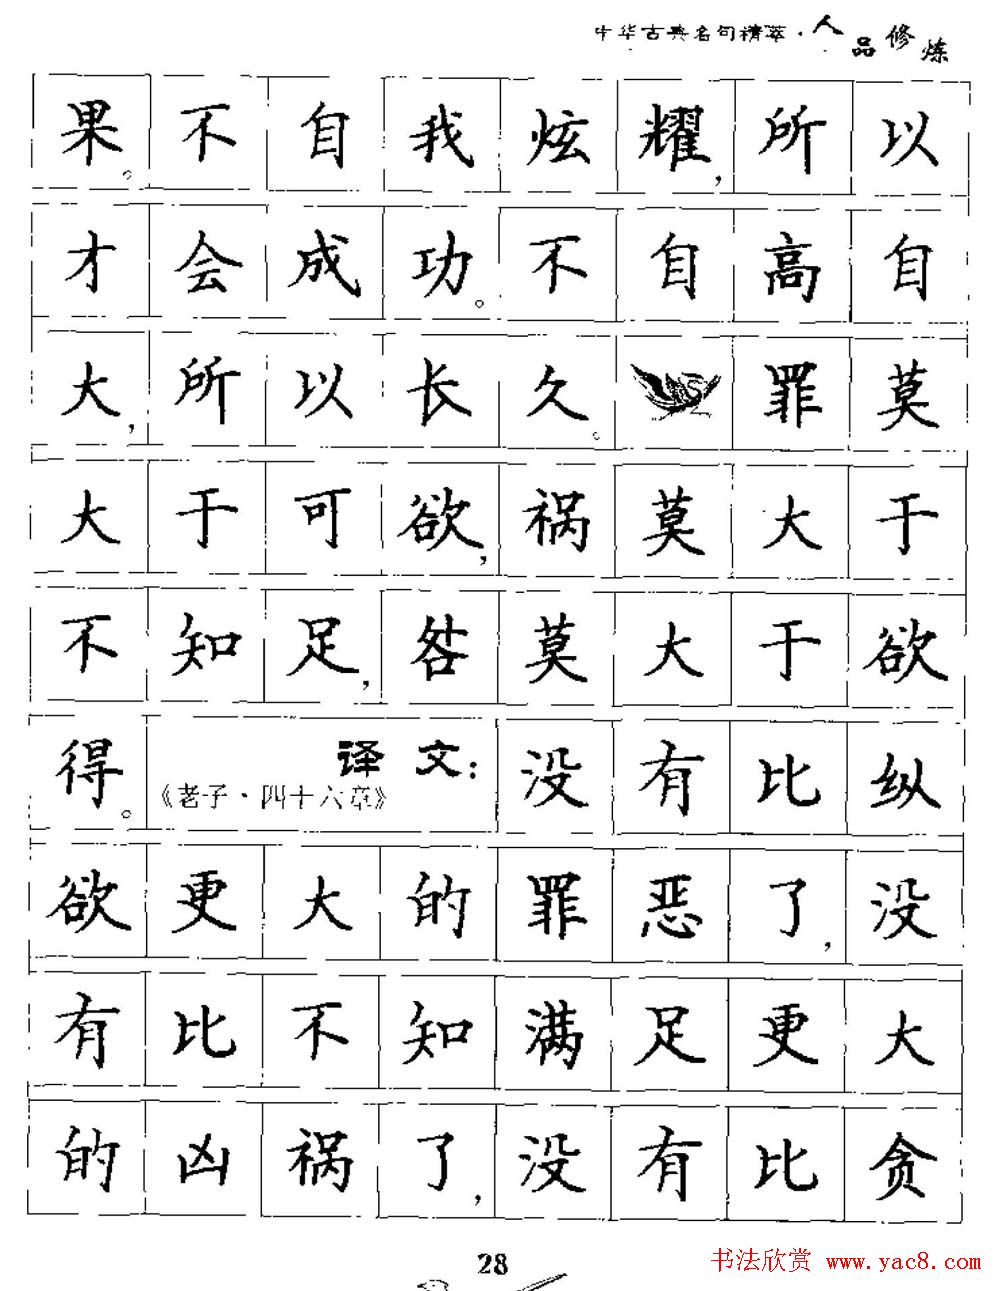 中华古典名句精萃·人品修炼
果。不自我炫耀，所以
才会成功。不自高自
大，所以长久。罪莫
大于可欲，祸莫大于
不知足，咎莫大于欲
得。《老子·四十六章》译文：没有比纵
欲更大的罪恶了，没
有比不知满足更大
的凶祸了，没有比贪
28
书法欣赏 www.yac8.com